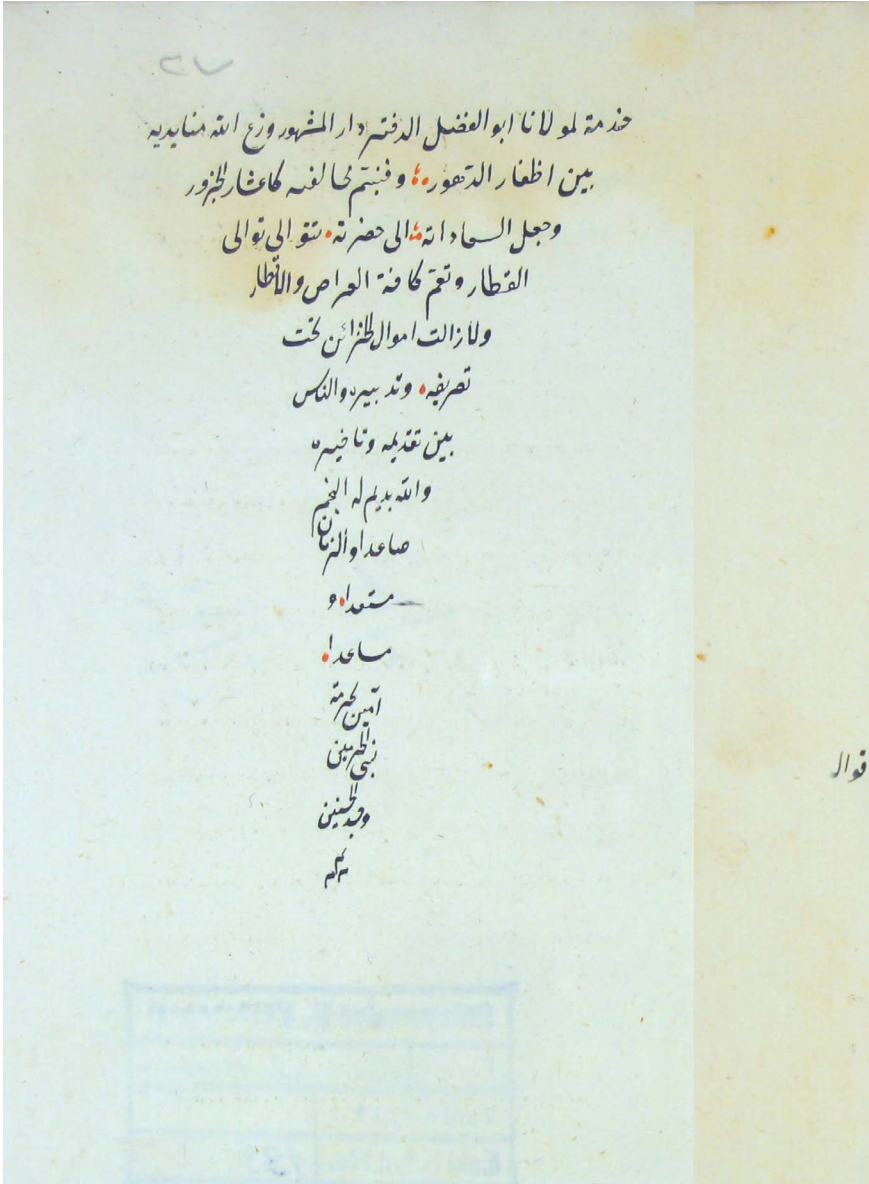 خدمة لمولانا ابو الفضل الدفتردار المشهور وزع الله منايديه
بين اظفار الدهور وفنيتم لمخالفيه كاعشار الجزور
وجعل السعاداته الى حضرته تتوالى توالى
القطار وتعم كافة العراص والاقطار
ولازالت اموال الخزائن تحت
تصريفه وتدبيره والناس
بين تقديمه وتاخيره
والله يديم له النجم
صاعدا والزمان
مستعدا و
مساعدا
آمين بحرمة
نبى الحرمين
وجد الحسنين
م م م
قوال